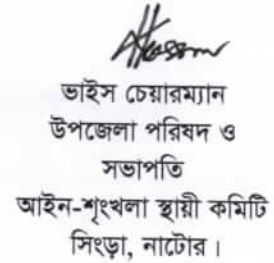 ভাইস চেয়ারম্যান
উপজেলা পরিষদ ও
সভাপতি
আইন-শৃংখলা স্থায়ী কমিটি
সিংড়া, নাটোর।